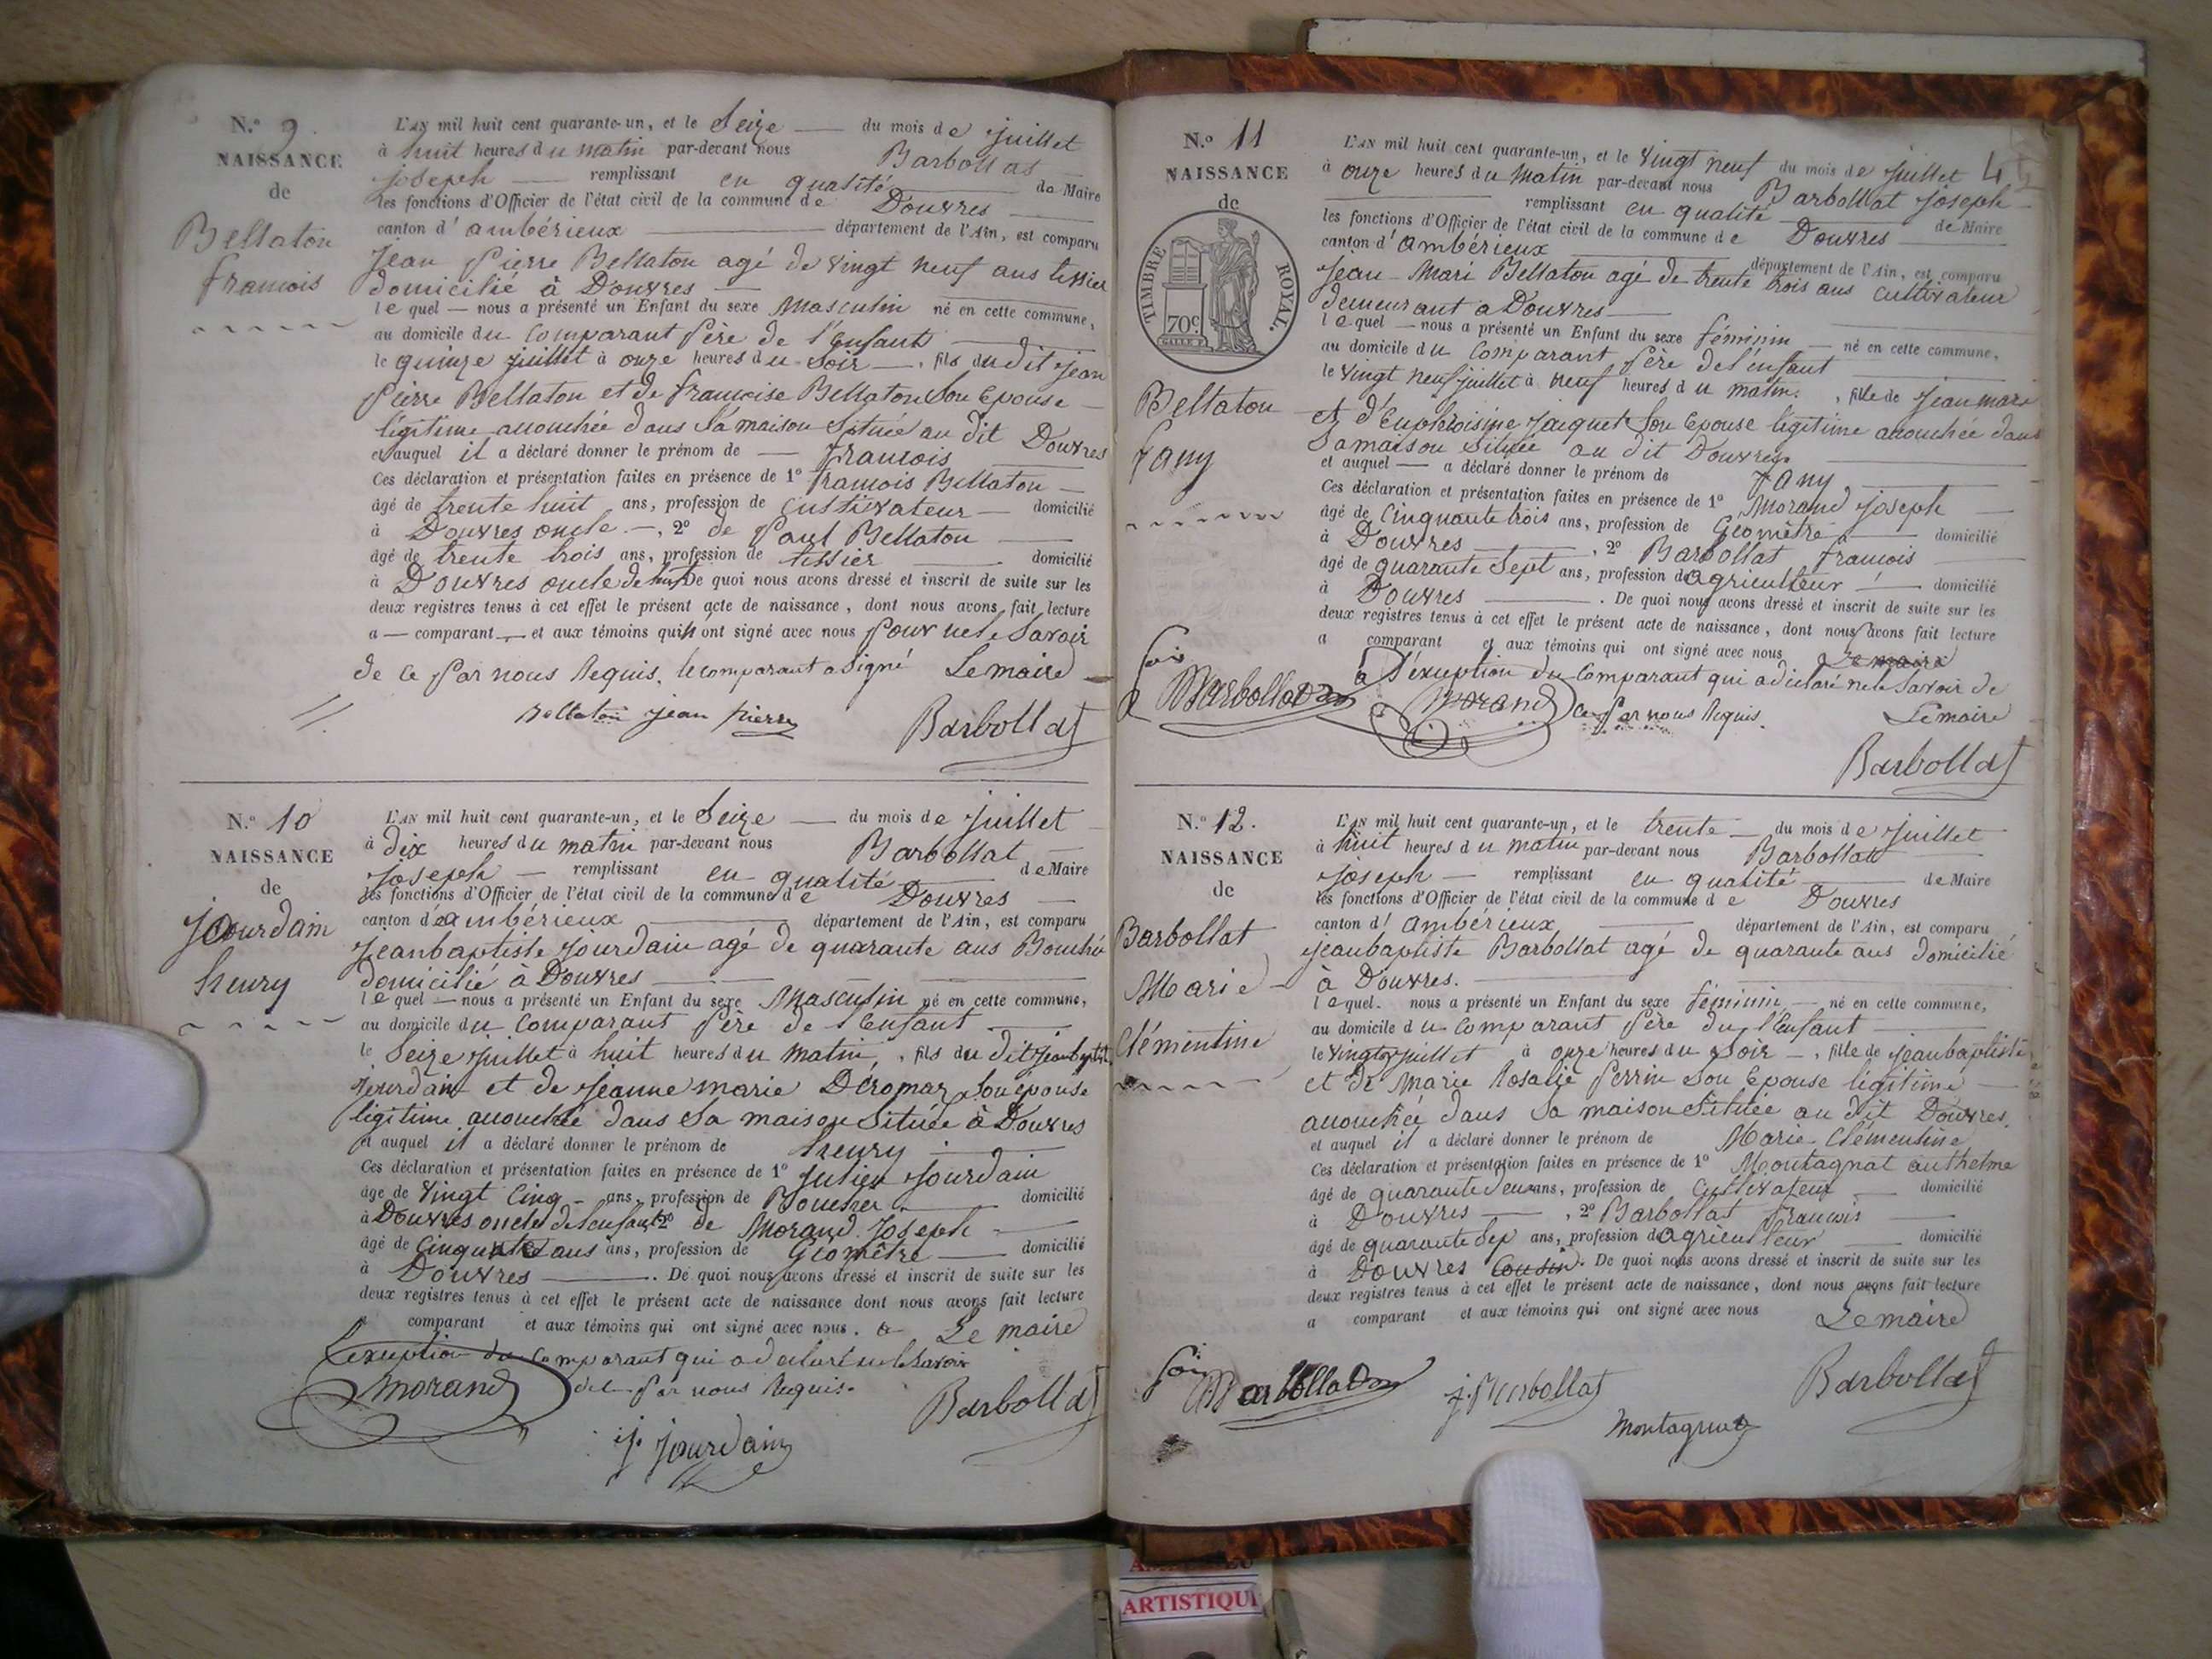 N.º 9.
NAISSANCE
de
Bellaton
francois
L'AN mil huit cent quarante-un, et le Seize du mois de juillet
à huit heures du matin par-devant nous Barbollat
joseph remplissant en qualité de Maire
les fonctions d'Officier de l'état civil de la commune de Douvres
canton d'ambérieux département de l'Ain, est comparu
Jean Pierre Bellaton agé de vingt neuf ans tissier
domicilié à Douvres
le quel nous a présenté un Enfant du sexe Masculin né en cette commune,
au domicile du Comparant Père de l'Enfant
le quinze juillet à onze heures du Soir, fils du dit jean
Pierre Bellaton et de francoise Bellaton Son Epouse
légitime accouchée dans Sa maison Située au dit Douvres
et auquel il a déclaré donner le prénom de francois
Ces déclaration et présentation faites en présence de 1º francois Bellaton
âgé de trente huit ans, profession de Cultivateur domicilié
à Douvres oncle, 2º de Paul Bellaton
âgé de trente trois ans, profession de tissier domicilié
à Douvres oncle de De quoi nous avons dressé et inscrit de suite sur les
deux registres tenus à cet effet le présent acte de naissance, dont nous avons fait lecture
a comparant et aux témoins qui ont signé avec nous Pour ne le Savoir
de ce Par nous Requis, le comparant a Signé Le maire
Bellaton jean pierre
Barbollat
N.º 10
NAISSANCE
de
jourdain
henry
L'AN mil huit cent quarante-un, et le Seize du mois de juillet
à dix heures du matin par-devant nous Barbollat
joseph remplissant en qualité de Maire
les fonctions d'Officier de l'état civil de la commune de Douvres
canton d'ambérieux département de l'Ain, est comparu
jeanbaptiste jourdain agé de quarante ans Bouché
domicilié à Douvres
le quel nous a présenté un Enfant du sexe Masculin né en cette commune,
au domicile du Comparant Père de l'Enfant
le Seize juillet à huit heures du matin, fils du dit jeanbaptiste
jourdain et de jeanne marie Déromas Son épouse
légitime accouchée dans Sa maison Située à Douvres
et auquel il a déclaré donner le prénom de henry
Ces déclaration et présentation faites en présence de 1º julien jourdain
âgé de vingt cinq ans, profession de Boucher domicilié
à Douvres oncle de lenfant 2º de Morand Joseph
âgé de Cinquante ans ans, profession de Géomètre domicilié
à Douvres. De quoi nous avons dressé et inscrit de suite sur les
deux registres tenus à cet effet le présent acte de naissance dont nous avons fait lecture
a comparant et aux témoins qui ont signé avec nous. a Le maire
L'exeuption du Comparant qui a declaré ne le Savoir
morand de Par nous Requis.
Barbollat
j. jourdain
N.º 11
NAISSANCE
de
TIMBRE ROYAL.
70c
Bellaton
fany
L'AN mil huit cent quarante-un, et le vingt neuf du mois de juillet
à onze heures du Matin par-devant nous Barbollat joseph
remplissant en qualité de Maire
les fonctions d'Officier de l'état civil de la commune de Douvres
canton d'ambérieux département de l'Ain, est comparu
jean Mari Bellaton agé de trente trois ans Cultivateur
demeurant a Douvres
le quel nous a présenté un Enfant du sexe féminin né en cette commune,
au domicile du Comparant Père de l'enfant
le vingt neuf juillet à neuf heures du matin, fille de jean mari
et d'Euphroisine jacquet Son Epouse légitime accouchée dans
Sa maison Située au dit Douvres
et auquel a déclaré donner le prénom de fany
Ces déclaration et présentation faites en présence de 1º Morand joseph
âgé de Cinquante trois ans, profession de Géomètre domicilié
à Douvres, 2º Barbollat francois
âgé de quarante Sept ans, profession d agriculteur domicilié
à Douvres. De quoi nous avons dressé et inscrit de suite sur les
deux registres tenus à cet effet le présent acte de naissance, dont nous avons fait lecture
a comparant et aux témoins qui ont signé avec nous Le maire
à L'exeuption du Comparant qui a déclaré ne le Savoir de
morand ce Par nous Requis. Le maire
Barbollat
N.º 12.
NAISSANCE
de
Barbollat
Marie
Clémentine
L'AN mil huit cent quarante-un, et le trente du mois de juillet
à huit heures du matin par-devant nous Barbollat
joseph remplissant en qualité de Maire
les fonctions d'Officier de l'état civil de la commune de Douvres
canton d'ambérieux département de l'Ain, est comparu
jeanbaptiste Barbollat agé de quarante ans domicilié
à Douvres.
lequel. nous a présenté un Enfant du sexe féminin né en cette commune,
au domicile du Comparant Père du l'Enfant
le juillet à onze heures du Soir, fille de jeanbaptiste
et de Marie Rosalie Perrin Son Epouse légitime
accouchée dans Sa maison Située au dit Douvres.
et auquel il a déclaré donner le prénom de Marie Clémentine
Ces déclaration et présentation faites en présence de 1º Montagnat anthelme
âgé de quarante deux ans, profession de Cultivateur domicilié
à Douvres, 2º Barbollat francois
âgé de quarante Sep ans, profession d agriculteur domicilié
à Douvres Cousin. De quoi nous avons dressé et inscrit de suite sur les
deux registres tenus à cet effet le présent acte de naissance, dont nous avons fait lecture
a comparant et aux témoins qui ont signé avec nous Le maire
j. Barbollat
Barbollat
Montagnat
ARTISTIQU